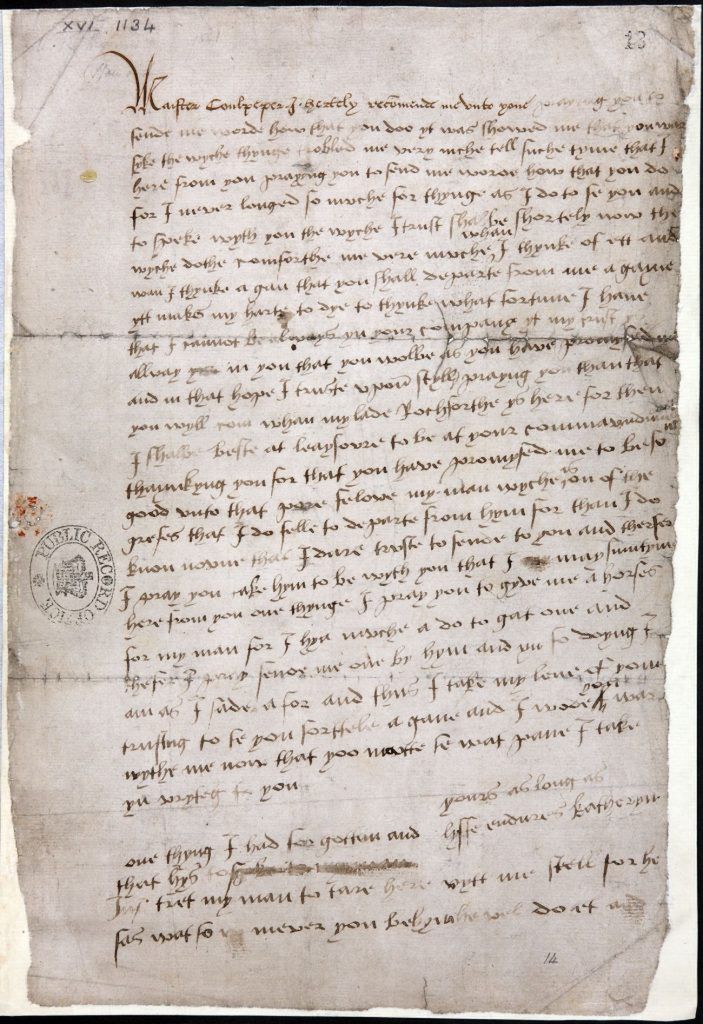 XVI 1134
23
Maister Coulpeper I hertely recomende me unto youe praying you to
sende me worde how that you doo yt was showed me that you was
seke the wyche thynge trobled me very muche tell suche tyme that I
here from you praying you to send me worde how that you do
for I never longed so muche for thynge as I do to se you and
to speke wyth you the wyche I trust shalbe shortely now the
wyche dothe comforthe me verie muche whan I thynke of ett and
wan I thynke a gan that you shall departe from me agane
ytt makes my harte to dye to thynke what fortune I have
that I cannot be always yn your company yt my trust ys
allway in you that you wolbe as you have promysed me
and in that hope I truste upon styll prayng you than that
you wyll com whan my lade Rochforthe ys here for then
I shalbe beste at leaysoure to be at your commaundment
thaynkyng you for that you have promysed me to be so
good unto that pore felowe my man wyche ys on of the
grefes that I do felle to departe from hym for than I do
know noone that I dare truste to sende to you and therfor
I pray you take hym to be wyth you that I may sumtym
here from you one thynge I pray you to gyve me a horse
for my man for I hyd muche a do to gat one and
thefer I pray sende me one by hym and yn so doying I
am as I sade afor and thus I take my leve of you
trusting to se you shorttele agane and I wode you was
wythe me now that yoo maitte se wat pane I take
yn wryteg to you
yours as long as
lyffe endures Katheryn
one thyng I had forgotten and
that hys to
tret my man to tare here wytt me still for he
sas wat so mever you bed hym he wel do et and
14
PUBLIC RECORD OFFICE